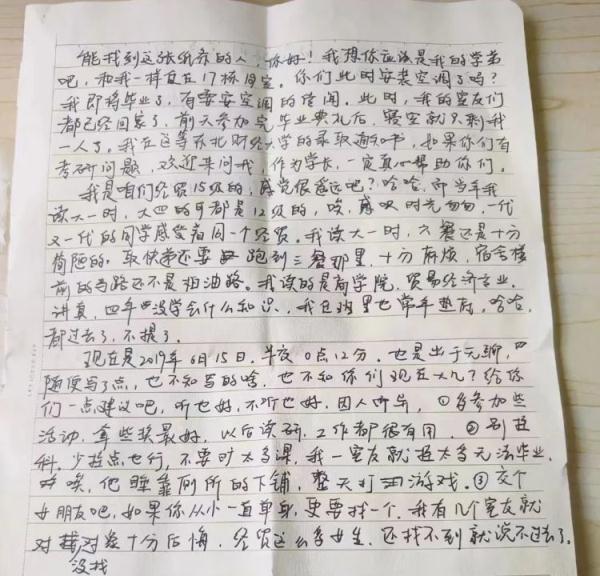 能找到这张纸条的人，你好！我想你应该是我的学弟
吧，和我一样直在17栋住宿。你们此时安装空调了吗？
我即将毕业了，有要安空调的传闻。此时，我的室友们
都已经回家了，前天参加完毕业典礼后，寝室就只剩我
一人了。我在这等东北财经大学的录取通知书，如果你们有
考研问题，欢迎来问我，作为学长，一定真心帮助你们。
我是咱们经贸15级的，感觉很遥远吧？哈哈，即当年我
读大一时，大四的可都是12级的，唉，感叹时光匆匆，一代
又一代的同学感受着同一个经贸。我读大一时，六餐还是十分
简陋的，取快递还要跑到三餐那里，十分麻烦，宿舍楼
前的马路还不是柏油路。我读的是商学院，贸易经济专业。
讲真，四年没学会什么知识，我在班里也常年垫底，哈哈，
都过去了，不提了。
现在是2019年6月15日，半夜0点12分，也是出于无聊，
随便写了点，也不知写的啥，也不知你们现在大几？给你
们一点建议吧，听也好，不听也好，因人而异，①多参加些
活动，拿些奖最好，以后读研、工作都很有用。②别挂
科，少挂点也行，不要旷太多课，我一室友就挂太多无法毕业，
唉，他睡靠厕所的下铺，整天打游戏。③交个
女朋友吧，如果你从小一直单身，更要找一个，我有几个室友就
对没找对象十分后悔，经贸这么多女生，还找不到就说不过去了。